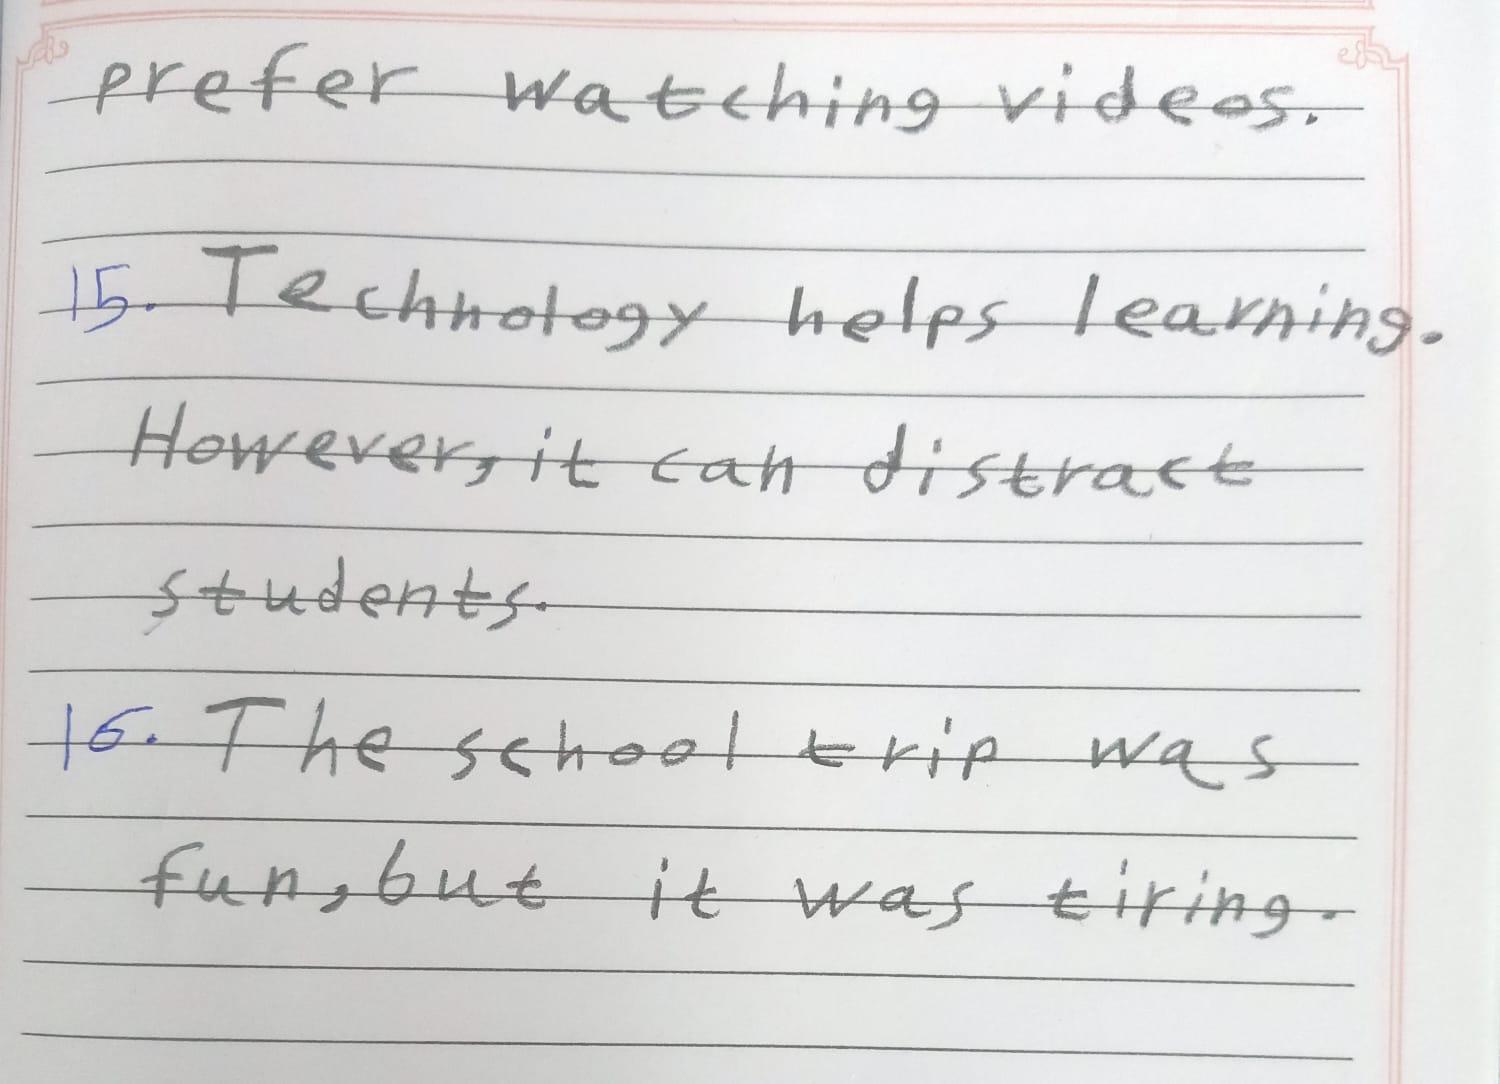 prefer watching videos.
15. Technology helps learning.
However, it can distract
students.
16. The school trip was
fun, but it was tiring.